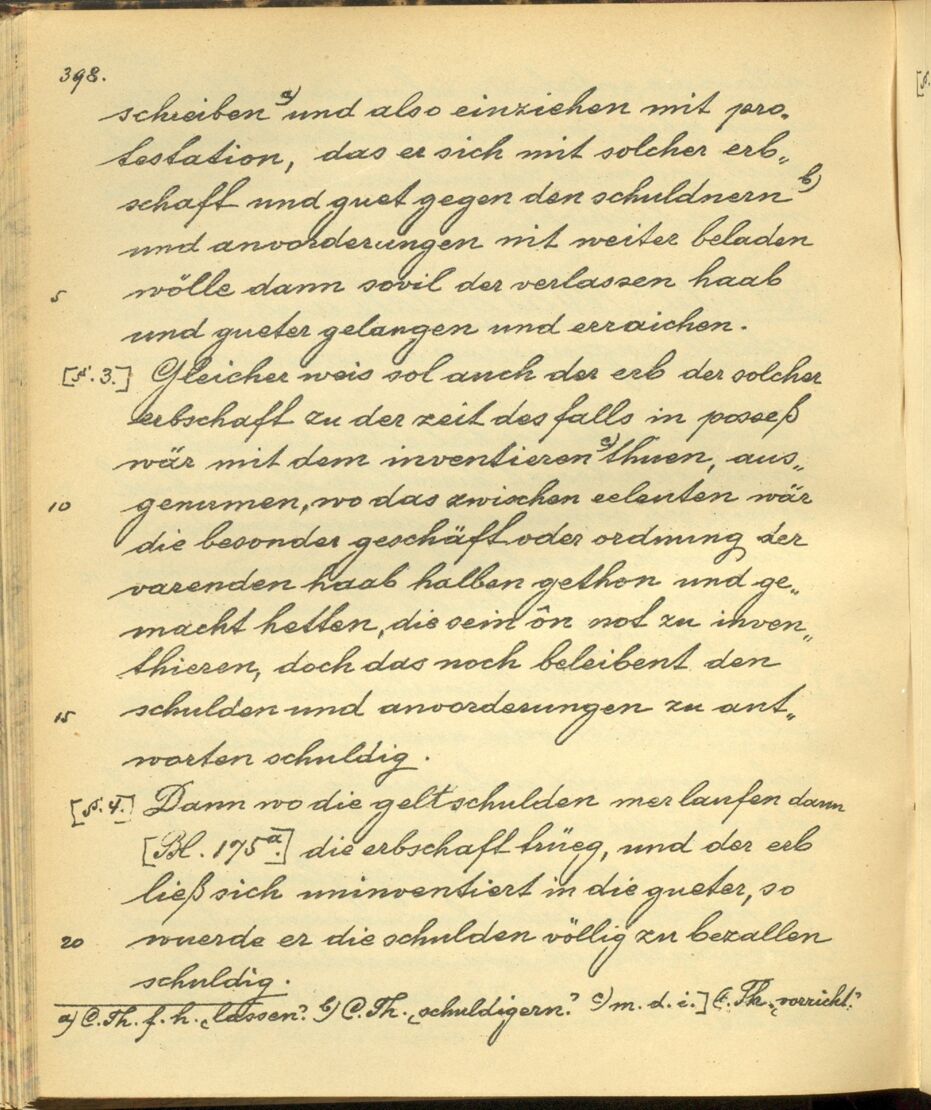 398.
schreiben a) und also einziehen mit pro„
testation, das er sich mit solcher erb„
schaft und guet gegen den schuldnern b)
und anvorderungen nit weiter beladen
5 wölle dann sovil der verlassen haab
und gueter gelangen und erraichen.
[§. 3.] Gleicher weis sol auch der erb der solcher
erbschaft zu der zeit des falls in poseß
wär mit dem inventieren c) thuen, aus„
10 genumen, wo das zwischen eeleuten wär
die besonder geschäft oder ordnung der
varenden haab halben gethon und ge„
macht hetten, die sein ôn not zu inven„
thieren, doch das noch beleibent den
15 schulden und anvorderungen zu ant„
worten schuldig.
[§. 4.] Dann wo die geltschulden mer laufen dann
[Bl. 175a.] die erbschaft trüeg, und der erb
ließ sich uninventiert in die gueter, so
20 wuerde er die schulden völlig zu bezallen
schuldig.
a) C. Th. f. h. „lassen“. b) C. Th. „schuldigern“. c) m. d. i.] C. Th. „vorricht.“
[§.